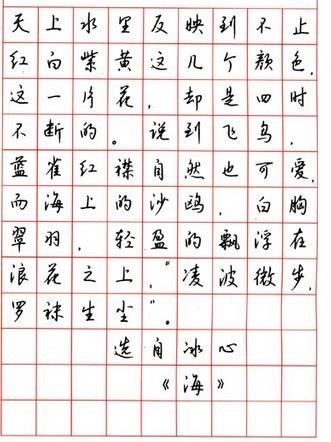 天上水里反映到不止
红白紫黄这几个颜色,
这一片花,却是四时
不断的。说到飞鸟,
蓝雀红襟自然也可爱,
而海上的沙鸥,白胸
翠羽,轻盈的飘浮在
浪花之上,“凌波微步,
罗袜生尘”。
选自冰心
《海》